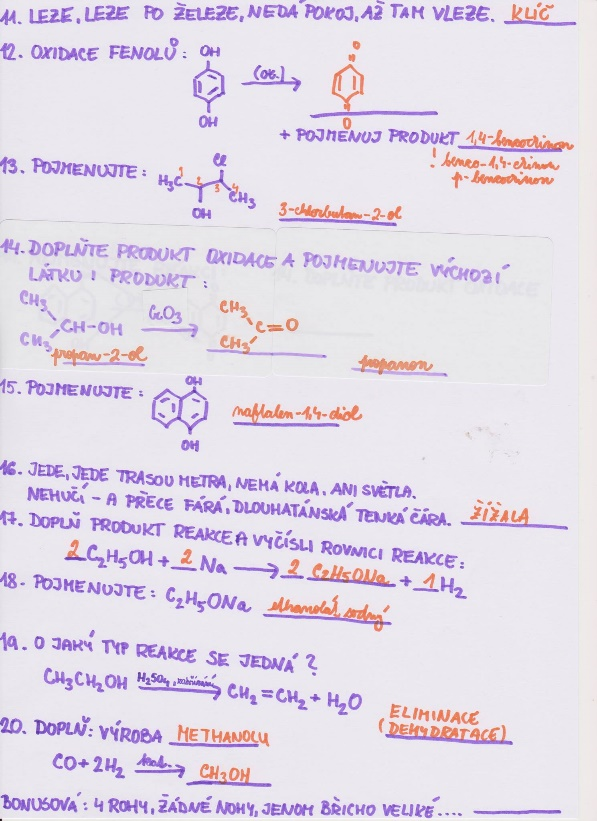 11. LEZE, LEZE PO ŽELEZE, NEDÁ POKOJ, AŽ TAM VLEZE. KLÍČ
12. OXIDACE FENOLŮ:
OH
(ox.)
O
OH
O
+ POJMENUJ PRODUKT 1,4-benzochinon
! benzo-1,4-chinon
p-benzochinon
13. POJMENUJTE:
Cl
H3C 1 2 3 4 CH3
OH
3-chlorbutan-2-ol
14. DOPLŇTE PRODUKT OXIDACE A POJMENUJTE VÝCHOZÍ
LÁTKU I PRODUKT:
CH3
CH-OH
CH3
CrO3
CH3
C=O
CH3
propan-2-ol
propanon
15. POJMENUJTE:
OH
OH
naftalen-1,4-diol
16. JEDE, JEDE TRASOU METRA, NEMÁ KOLA, ANI SVĚTLA.
NEHUČÍ - A PŘECE FÁRÁ, DLOUHATÁNSKÁ TENKÁ ČÁRA. ŽÍŽALA
17. DOPLŇ PRODUKT REAKCE A VYČÍSLI ROVNICI REAKCE:
2 C2H5OH + 2 Na → 2 C2H5ONa + 1 H2
18. POJMENUJTE: C2H5ONa ethanolát sodný
19. O JAKÝ TYP REAKCE SE JEDNÁ?
CH3CH2OH H2SO4, zahřívání → CH2=CH2 + H2O
ELIMINACE
(DEHYDRATACE)
20. DOPLŇ: VÝROBA METHANOLU
CO + 2H2 → CH3OH
BONUSOVÁ: 4 ROHY, ŽÁDNÉ NOHY, JENOM BŘICHO VELIKÉ....